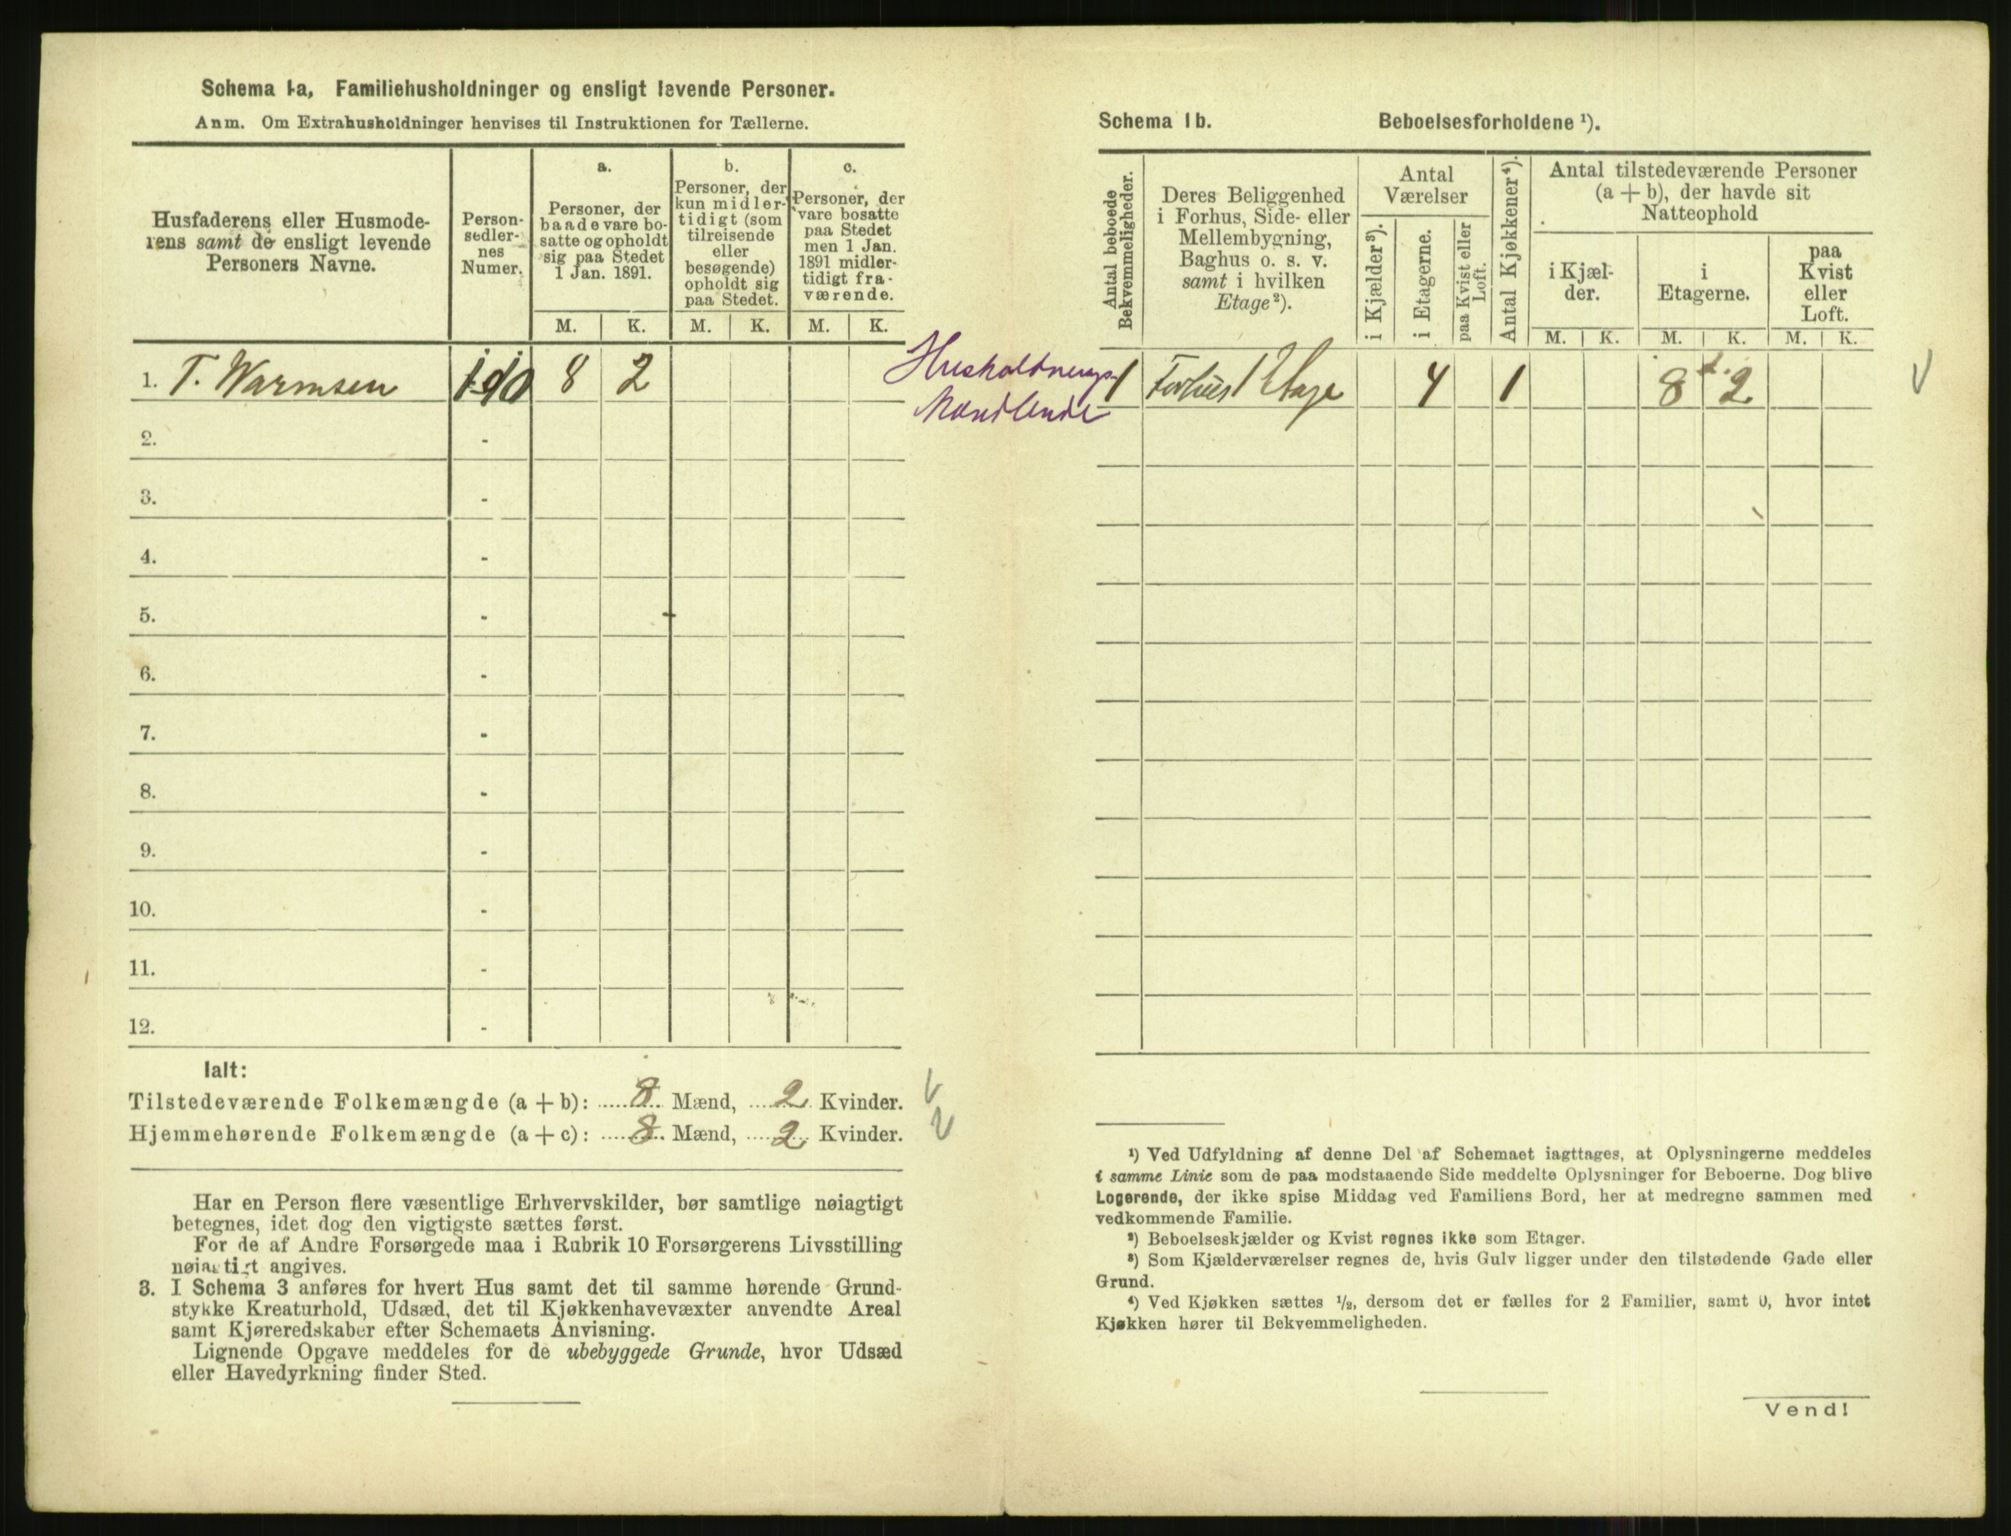 Schema 1a, Familiehusholdninger og ensligt levende Personer.
Anm. Om Extrahusholdninger henvises til Instruktionen for Tællerne.
Husfaderens eller Husmode-
rens samt de ensligt levende
Personers Navne.
Person-
sedler-
nes
Numer.
a.
Personer, der
baade vare bo-
satte og opholdt
sig paa Stedet
1 Jan. 1891.
b.
Personer, der
kun midler-
tidigt (som
tilreisende
eller
besøgende)
opholdt sig
paa Stedet.
c.
Personer, der
vare bosatte
paa Stedet
men 1 Jan.
1891 midler-
tidigt fra-
værende.
M. K. M. K. M. K.
1. T. Warmsen 1-10 8 2
2. -
3. -
4. -
5. -
6. -
7. -
8. -
9. -
10. -
11. -
12. -
Ialt:
Tilstedeværende Folkemængde (a + b): 8 Mænd, 2 Kvinder.
Hjemmehørende Folkemængde (a + c): 8 Mænd, 2 Kvinder.
Har en Person flere væsentlige Erhvervskilder, bør samtlige nøiagtigt
betegnes, idet dog den vigtigste sættes først.
For de af Andre Forsørgede maa i Rubrik 10 Forsørgerens Livsstilling
nøiagtigt angives.
3. I Schema 3 anføres for hvert Hus samt det til samme hørende Grund-
stykke Kreaturhold, Udsæd, det til Kjøkkenhavevæxter anvendte Areal
samt Kjøreredskaber efter Schemaets Anvisning.
Lignende Opgave meddeles for de ubebyggede Grunde, hvor Udsæd
eller Havedyrkning finder Sted.
Schema 1b. Beboelsesforholdene ¹).
Antal beboede
Bekvemmeligheder.
Deres Beliggenhed
i Forhus, Side- eller
Mellembygning,
Baghus o. s. v.
samt i hvilken
Etage²).
Antal
Værelser
i Kjælder³).
i Etagerne.
paa Kvist eller
Loft.
Antal Kjøkkener⁴).
Antal tilstedeværende Personer
(a + b), der havde sit
Natteophold
i Kjæl-
der.
i
Etagerne.
paa
Kvist
eller
Loft.
M. K. M. K. M. K.
Husholdnings
1 Forhus 1 Etage 4 1 8 2
¹) Ved Udfyldning af denne Del af Schemaet iagttages, at Oplysningerne meddeles
i samme Linie som de paa modstaaende Side meddelte Oplysninger for Beboerne. Dog blive
Logerende, der ikke spise Middag ved Familiens Bord, her at medregne sammen med
vedkommende Familie.
²) Beboelseskjælder og Kvist regnes ikke som Etager.
³) Som Kjælderværelser regnes de, hvis Gulv ligger under den tilstødende Gade eller
Grund.
⁴) Ved Kjøkken sættes ½, dersom det er fælles for 2 Familier, samt 0, hvor intet
Kjøkken hører til Bekvemmeligheden.
Vend!